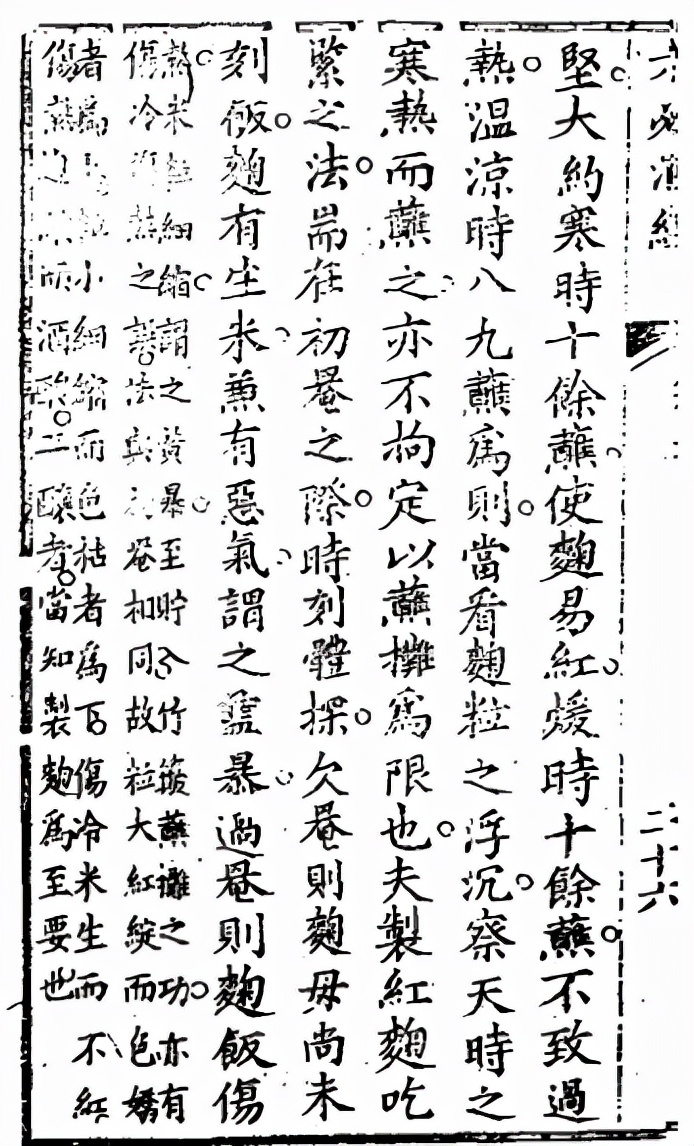 二十六
堅大約寒時十餘蘸使麹易紅煖時十餘蘸不致過
熱溫涼時八九蘸爲則當看麹粒之浮沉察天時之
寒熱而蘸之亦不拘定以蘸攤爲限也夫製紅麹吃
緊之法耑在初罨之際時刻體探欠罨則麹母尚未
刻飯麹有生米兼有惡氣謂之 暴過罨則麹飯傷
熱米粒細縮謂之 暴至貯 竹 蘸攤之功亦有
傷冷 熱之 法與 罨相同故粒大紅綻而色嬌
者爲 小細縮而色枯者爲下傷冷米生而不紅
傷熱 而酒酸二釀者當知製麹爲至要也